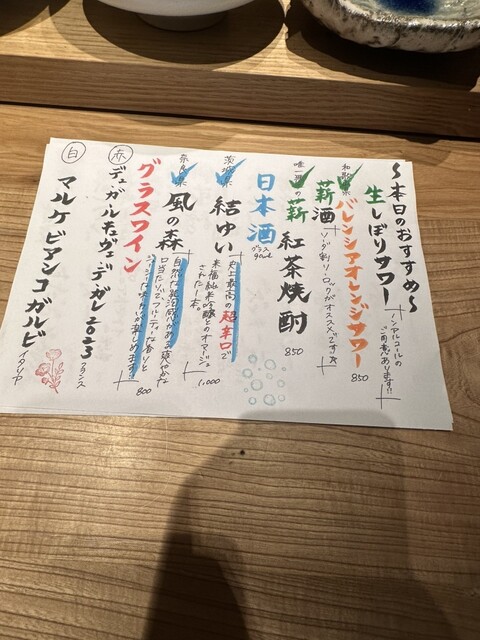 〜本日のおすすめ〜
生しぼりサワー
ノンアルコールの
ご用意あります!!
和歌山県
バレンシアオレンジサワー
850
薪酒
ソーダ割り・ロックがオススメです
唯一無二の
薪 紅茶焼酎
850
日本酒
グラス
90ml
茨城県
結ゆい
史上最高の超辛口で
来福純米吟醸とのオマージュ
された1本。
1,000
奈良県
風の森
自然な発泡感があり爽やかな
口当たりでフルーティな香りと
800
グラスワイン
赤
デ・ガルチュヴェデ・ガレ2023
フランス
白
マルケビアンコガルビ
イタリア